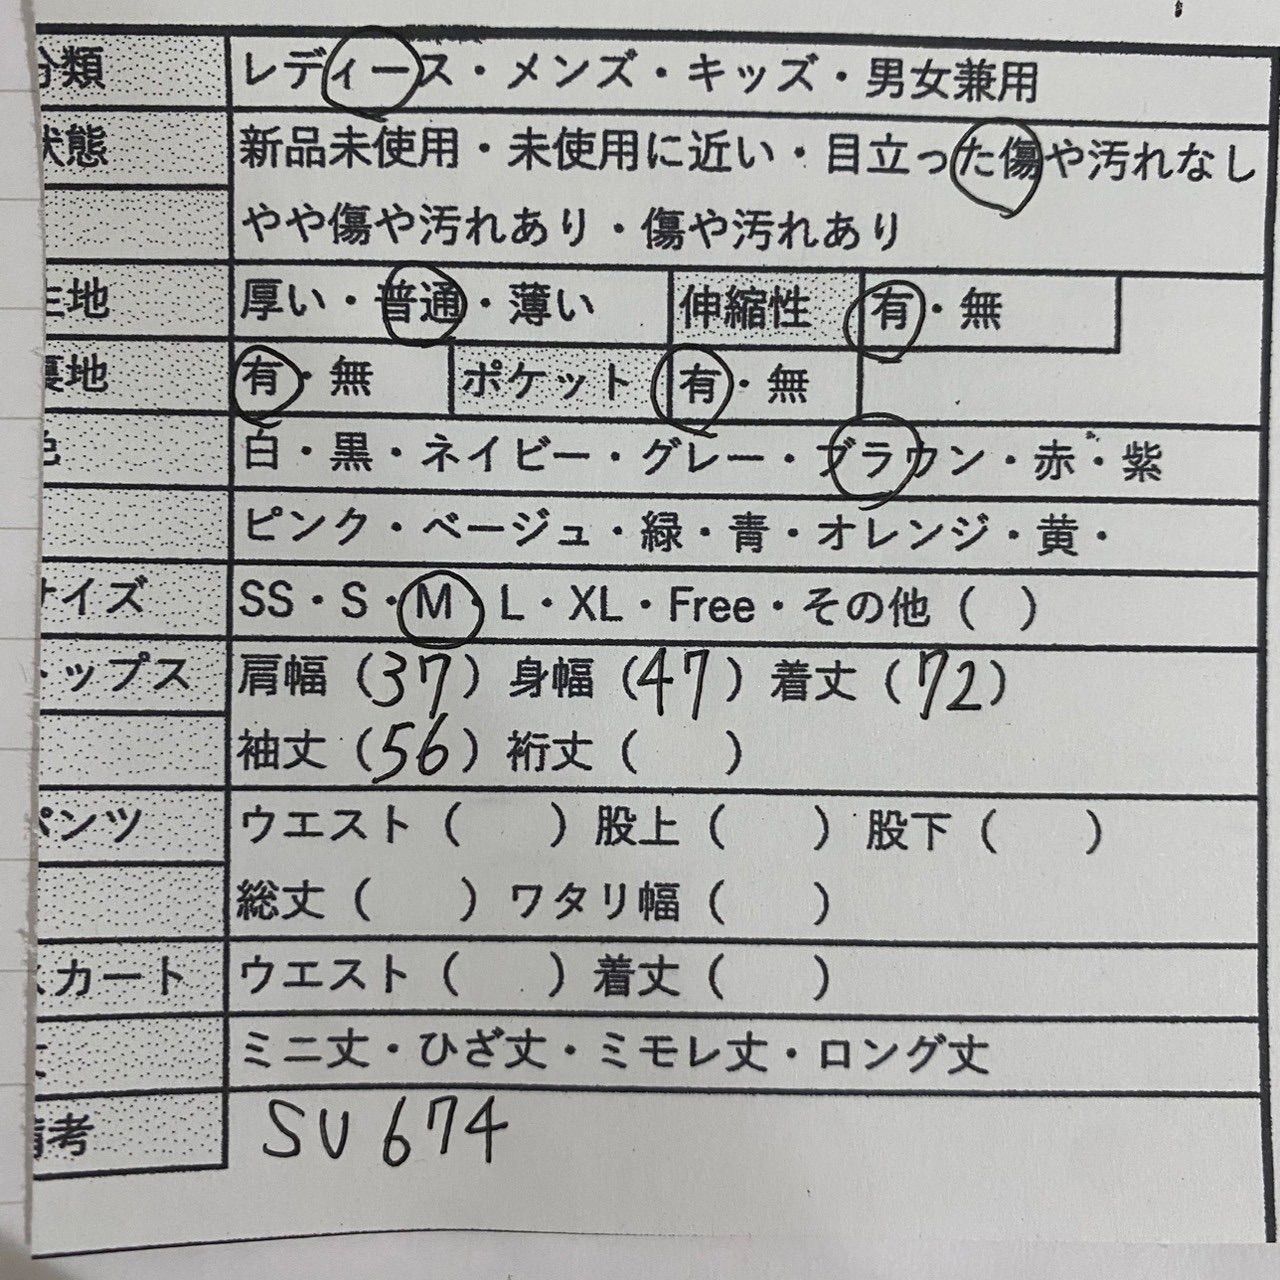 分類 レディース・メンズ・キッズ・男女兼用
状態 新品未使用・未使用に近い・目立った傷や汚れなし
やや傷や汚れあり・傷や汚れあり
生地 厚い・普通・薄い 伸縮性 有・無
裏地 有・無 ポケット 有・無
色 白・黒・ネイビー・グレー・ブラウン・赤・紫
ピンク・ベージュ・緑・青・オレンジ・黄・
サイズ SS・S・M・L・XL・Free・その他（ ）
トップス 肩幅（37）身幅（47）着丈（72）
袖丈（56）裄丈（ ）
パンツ ウエスト（ ）股上（ ）股下（ ）
総丈（ ）ワタリ幅（ ）
スカート ウエスト（ ）着丈（ ）
丈 ミニ丈・ひざ丈・ミモレ丈・ロング丈
備考 SU674